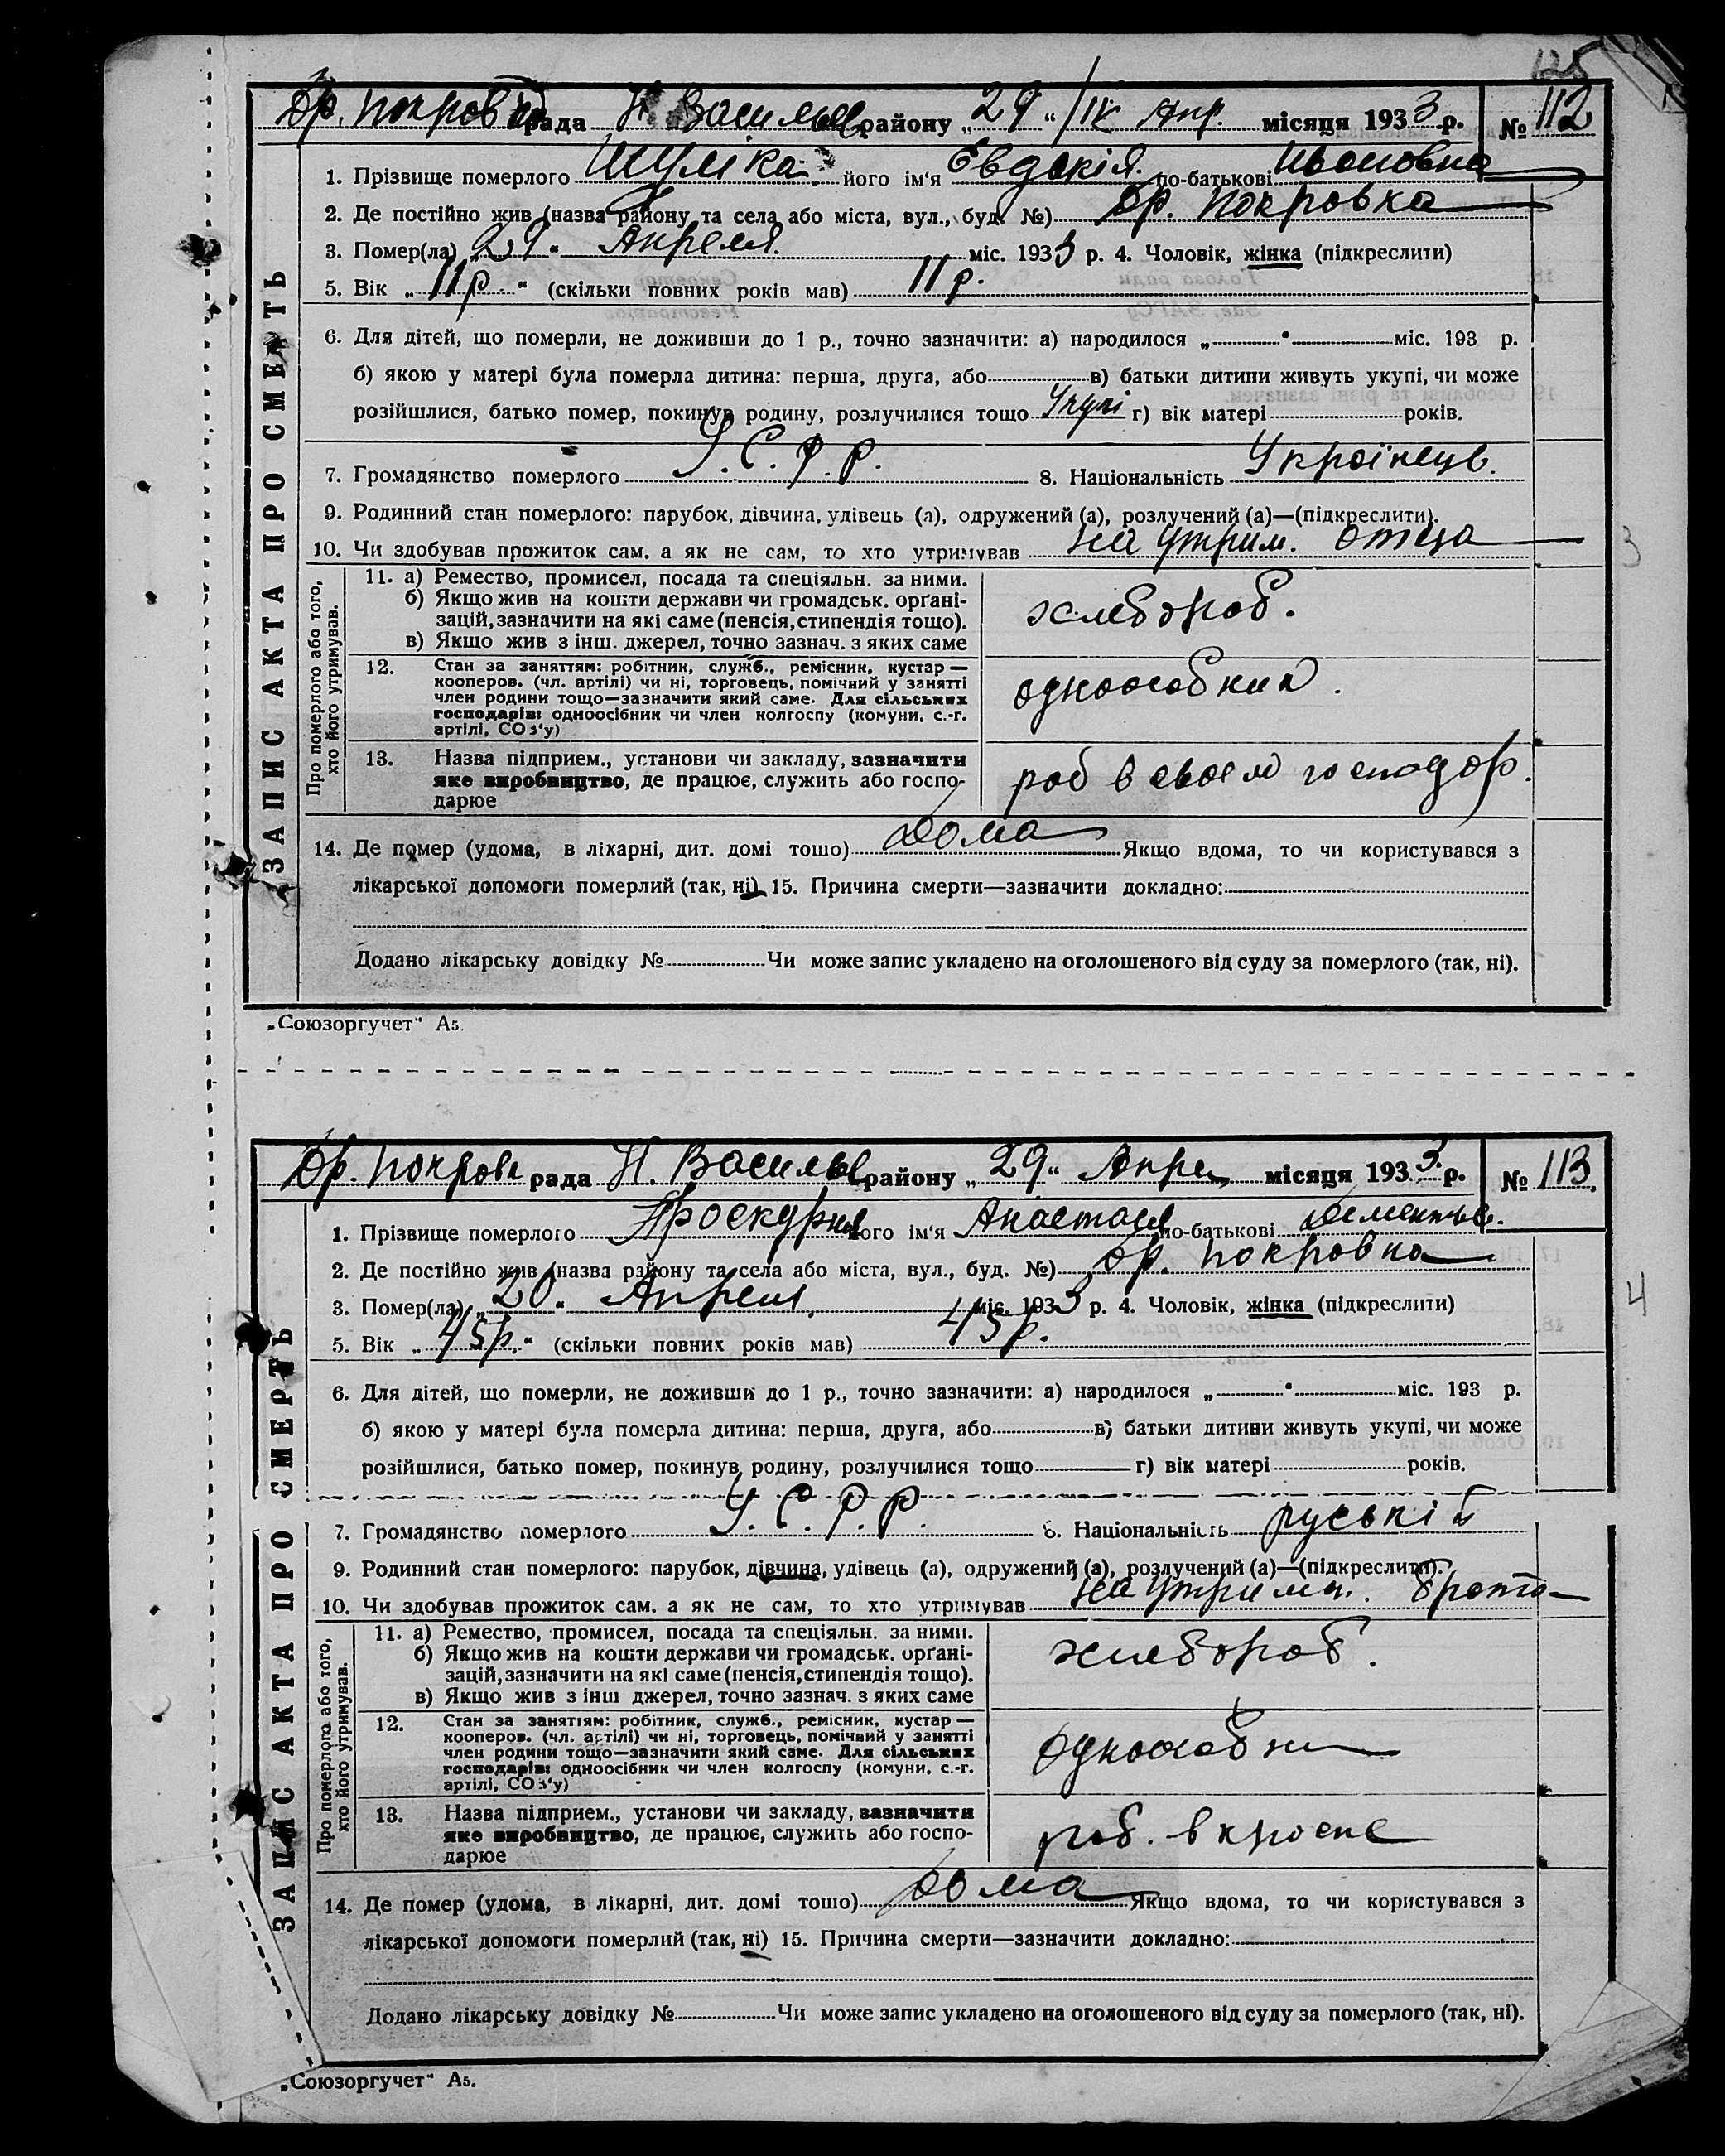 125
Др. Покров рада Н Васильев району „29“ /IV Апр. місяця 1933 р. № 112
1. Прізвище померлого Шуліка його ім‘я Евдокія. по-батькові
2. Де постійно жив (назва району та села або міста, вул., буд. №) Др. Покровка
3. Помер(ла) „29“ Апреля. міс. 1933 р. 4. Чоловік, жінка (підкреслити)
5. Вік „11 р.“ (скільки повних років мав) 11 р.
6. Для дітей, що померли, не доживши до 1 р., точно зазначити: а) народилося „ “ міс. 193 р.
б) якою у матері була померла дитина: перша, друга, або в) батьки дитини живуть укупі, чи може
розійшлися, батько помер, покинув родину, розлучилися тощо Укупі г) вік матері років.
7. Громадянство померлого У.С.Р.Р. 8. Національність Українець.
9. Родинний стан померлого: парубок, дівчина, удівець (а), одружений (а), розлучений (а)—(підкреслити).
10. Чи здобував прожиток сам, а як не сам, то хто утримував на утрим. отца
ЗАПИС АКТА ПРО СМЕРТЬ
Про померлого або того, хто його утримував.
11. а) Ремество, промисел, посада та спеціяльн. за ними.
б) Якщо жив на кошти держави чи громадськ. орґані-
зацій, зазначити на які саме (пенсія, стипендія тощо).
в) Якщо жив з інш. джерел, точно зазнач. з яких саме
хлебороб.
12. Стан за заняттям: робітник, служб., ремісник, кустар—
кооперов. (чл. артілі) чи ні, торговець, помічний у занятті
член родини тощо—зазначити який саме. Для сільських
господарів: одноосібник чи член колгоспу (комуни, с.-г.
артілі, СОЗ‘у)
одноособник.
13. Назва підприєм., установи чи закладу, зазначити
яке виробництво, де працює, служить або госпо-
дарюе
роб в своєм господар.
14. Де помер (удома, в лікарні, дит. домі тошо) дома Якщо вдома, то чи користувався з
лікарської допомоги померлий (так, ні) 15. Причина смерти—зазначити докладно:
Додано лікарську довідку № Чи може запис укладено на оголошеного від суду за померлого (так, ні).
„Союзоргучет“ А5.
3
Др. Покровк рада Н. Васильев району „29“ Апрел місяця 1933 р. № 113.
1. Прізвище померлого його ім‘я Анастасія по-батькові Дементьев.
2. Де постійно жив (назва району та села або міста, вул., буд. №) Др. Покровка
3. Помер(ла) „20“ Апреля. міс. 1933 р. 4. Чоловік, жінка (підкреслити)
5. Вік „45 р.“ (скільки повних років мав) 45 р.
6. Для дітей, що померли, не доживши до 1 р., точно зазначити: а) народилося „ “ міс. 193 р.
б) якою у матері була померла дитина: перша, друга, або в) батьки дитини живуть укупі, чи може
розійшлися, батько помер, покинув родину, розлучилися тощо г) вік матері років.
7. Громадянство померлого У.С.Р.Р. 8. Національність руській
9. Родинний стан померлого: парубок, дівчина, удівець (а), одружений (а), розлучений (а)—(підкреслити).
10. Чи здобував прожиток сам, а як не сам, то хто утримував на утрима. брата
4
ЗАПИС АКТА ПРО СМЕРТЬ
Про померлого або того, хто його утримував.
11. а) Ремество, промисел, посада та спеціяльн. за ними.
б) Якщо жив на кошти держави чи громадськ. орґані-
зацій, зазначити на які саме (пенсія, стипендія тощо).
в) Якщо жив з інш джерел, точно зазнач. з яких саме
хлебороб.
12. Стан за заняттям: робітник, служб., ремісник, кустар—
кооперов. (чл. артілі) чи ні, торговець, помічний у занятті
член родини тощо—зазначити який саме. Для сільських
господарів: одноосібник чи член колгоспу (комуни, с.-г.
артілі, СОЗ‘у)
одноособни
13. Назва підприєм., установи чи закладу, зазначити
яке виробництво, де працює, служить або госпо-
дарюе
роб. в
14. Де помер (удома, в лікарні, дит. домі тошо) дома Якщо вдома, то чи користувався з
лікарської допомоги померлий (так, ні) 15. Причина смерти—зазначити докладно:
Додано лікарську довідку № Чи може запис укладено на оголошеного від суду за померлого (так, ні).
„Союзоргучет“ А5.